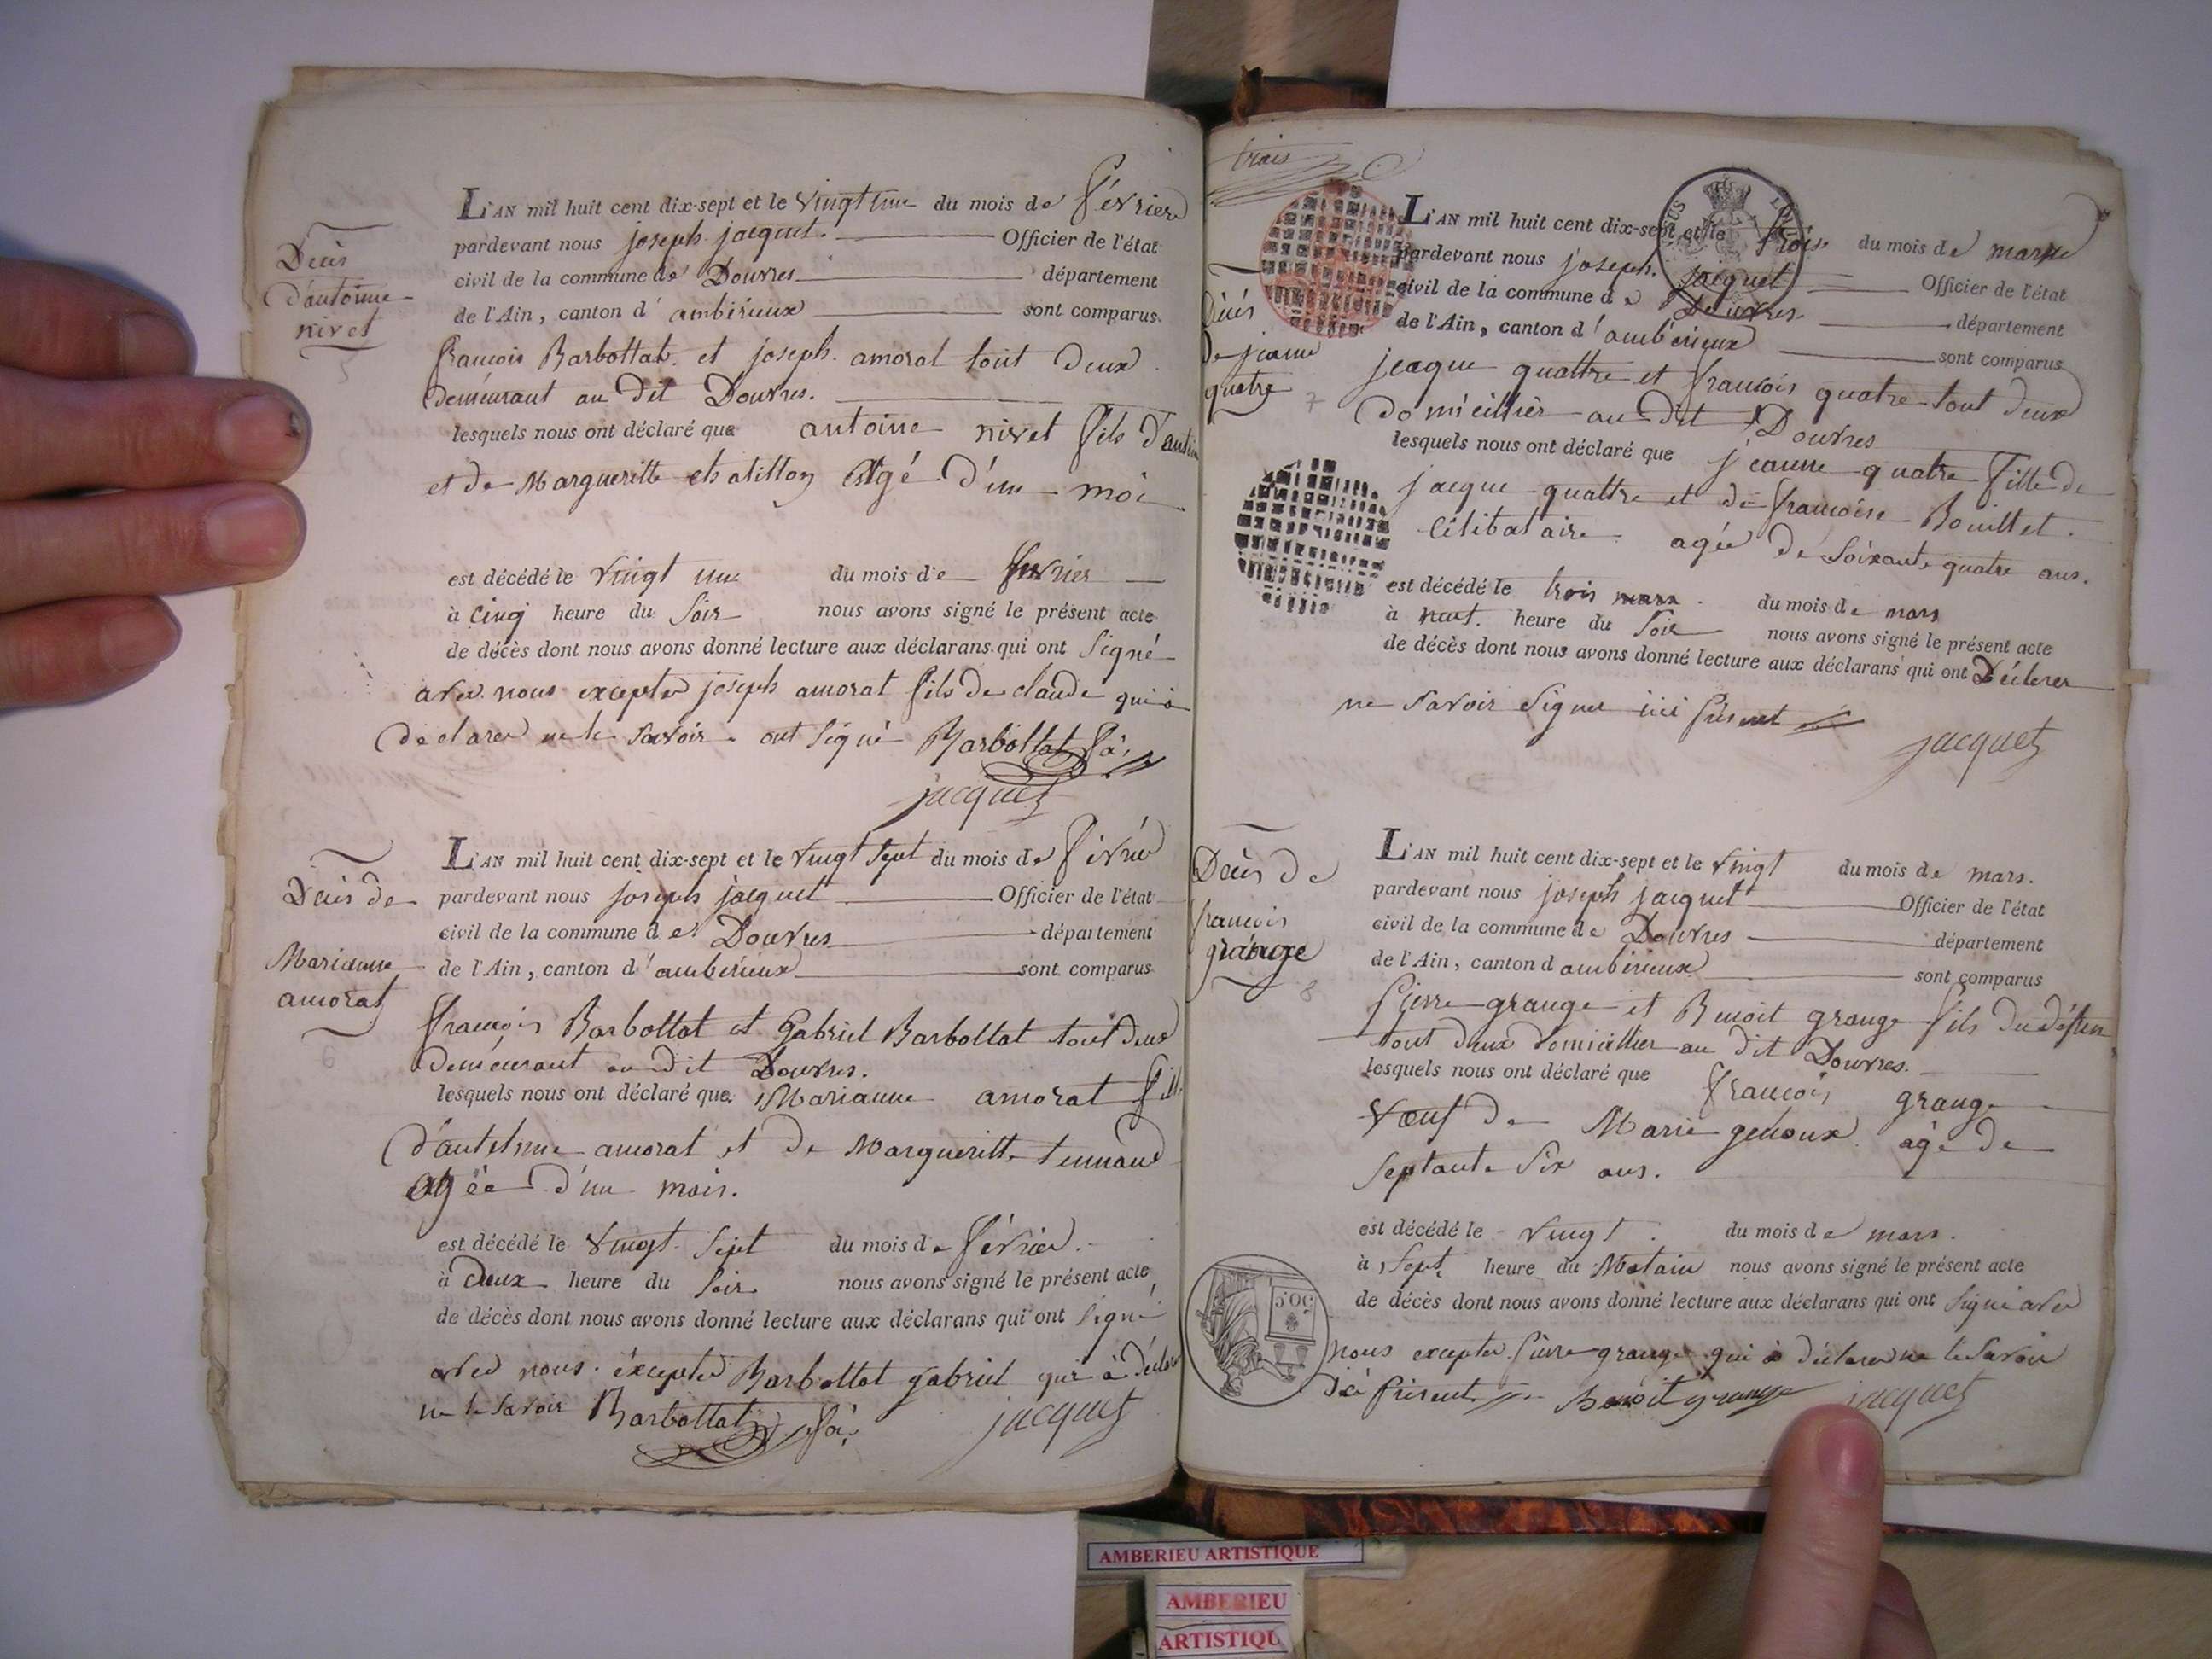 Décès
d'antoine
nivet
5
L'AN mil huit cent dix-sept et le vingt une du mois de février
pardevant nous joseph jacquet. Officier de l'état
civil de la commune de Douvres département
de l'Ain, canton d'ambérieux sont comparus
francois Barbottat et joseph amorat tout deux
demeurant au dit Douvres.
lesquels nous ont déclaré que antoine nivet fils d'antoine
et de Margueritte chatillon Agé d'un moi
est décédé le vingt une du mois de fevrier
à cinq heure du soir nous avons signé le présent acte
de décès dont nous avons donné lecture aux déclarans qui ont signé
avec nous excepter joseph amorat fils de claude qui à
declarer ne le savoir ont signé Barbottat
jacquet
Décès de
Marianne
amorat
6
L'AN mil huit cent dix-sept et le vingt sept du mois de févrié
pardevant nous joseph jacquet Officier de l'état
civil de la commune de Douvres département
de l'Ain, canton d'ambérieux sont comparus
francois Barbottat et Gabriel Barbottat tout deux
demeurant au dit Douvres.
lesquels nous ont déclaré que Marianne amorat fille
d'antelme amorat et de Margueritte tennand
Agée d'un mois.
est décédé le vingt sept du mois de février.
à deux heure du soir nous avons signé le présent acte
de décès dont nous avons donné lecture aux déclarans qui ont signé
avec nous excepter Barbottat gabriel qui à déclarer
ne le savoir Barbottat
jacquet
trois
Décès
de jeanne
quatre
7
L'AN mil huit cent dix-sept et le trois du mois de mars
pardevant nous joseph jacquet Officier de l'état
civil de la commune de Douvres département
de l'Ain, canton d'ambérieux sont comparus
jacque quattre et francois quatre tout deux
domicillier au dit Douvres
lesquels nous ont déclaré que jeanne quatre fille de
jacque quattre et de francoise Bouillet.
célibataire agée de soixante quatre ans.
est décédé le trois mars du mois de mars
à neuf heure du soir nous avons signé le présent acte
de décès dont nous avons donné lecture aux déclarans qui ont Déclarer
ne savoir signer ici présent
jacquet
Décès de
francois
grange
8
L'AN mil huit cent dix-sept et le vingt du mois de mars.
pardevant nous joseph jacquet Officier de l'état
civil de la commune de Douvres département
de l'Ain, canton d ambérieux sont comparus
Pierre grange et Benoit grange fils du défun
tout deux domicillier au dit Douvres.
lesquels nous ont déclaré que francois grange
veuf de Marie genoux agé de
septante six ans.
est décédé le vingt du mois de mars.
à sept heure du Matain nous avons signé le présent acte
de décès dont nous avons donné lecture aux déclarans qui ont signé avec
nous excepter Pierre grange qui à déclarer ne le savoir
ici présent. Benoit grange jacquet
AMBERIEU ARTISTIQUE
AMBERIEU
ARTISTIQU